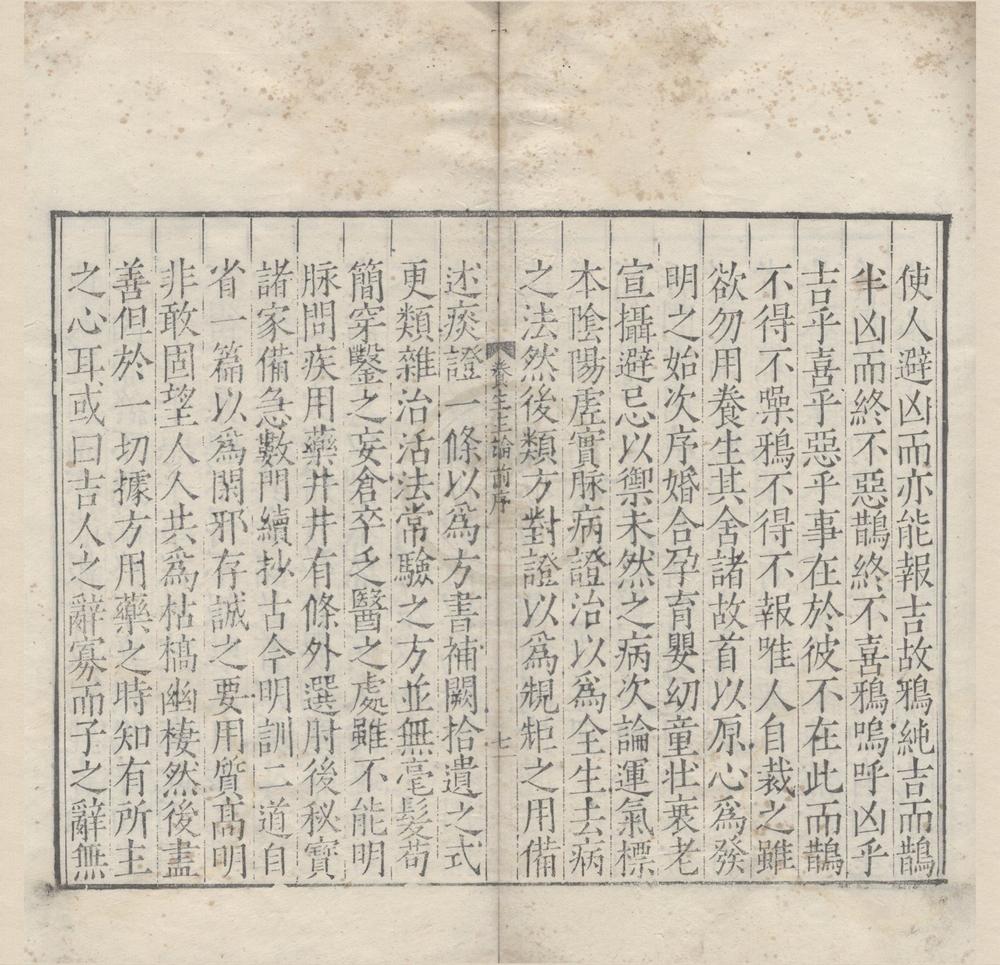 使人避凶而亦能報吉故鴉純吉而鵲
半凶而終不惡鵲終不喜鴉嗚呼凶乎
吉乎喜乎惡乎事在於彼不在此而鵲
不得不噪鴉不得不報唯人自裁之雖
欲勿用養生其舍諸故首以原心爲發
明之始次序婚合孕育嬰幼童壯衰老
宣攝避忌以禦未然之病次論運氣標
本陰陽虛實脉病證治以爲全生去病
之法然後類方對證以爲規矩之用備
養生主論前序
七
述痰證一條以爲方書補闕拾遺之式
更類雜治活法常驗之方並無毫髮苟
簡穿鑿之妄倉卒乏醫之處雖不能明
脉問疾用藥井井有條外選肘後秘寶
諸家備急數門續抄古今明訓二道自
省一篇以爲閑邪存誠之要用質髙明
非敢固望人人共爲枯槁幽棲然後盡
善但於一切據方用藥之時知有所主
之心耳或曰吉人之辭寡而子之辭無